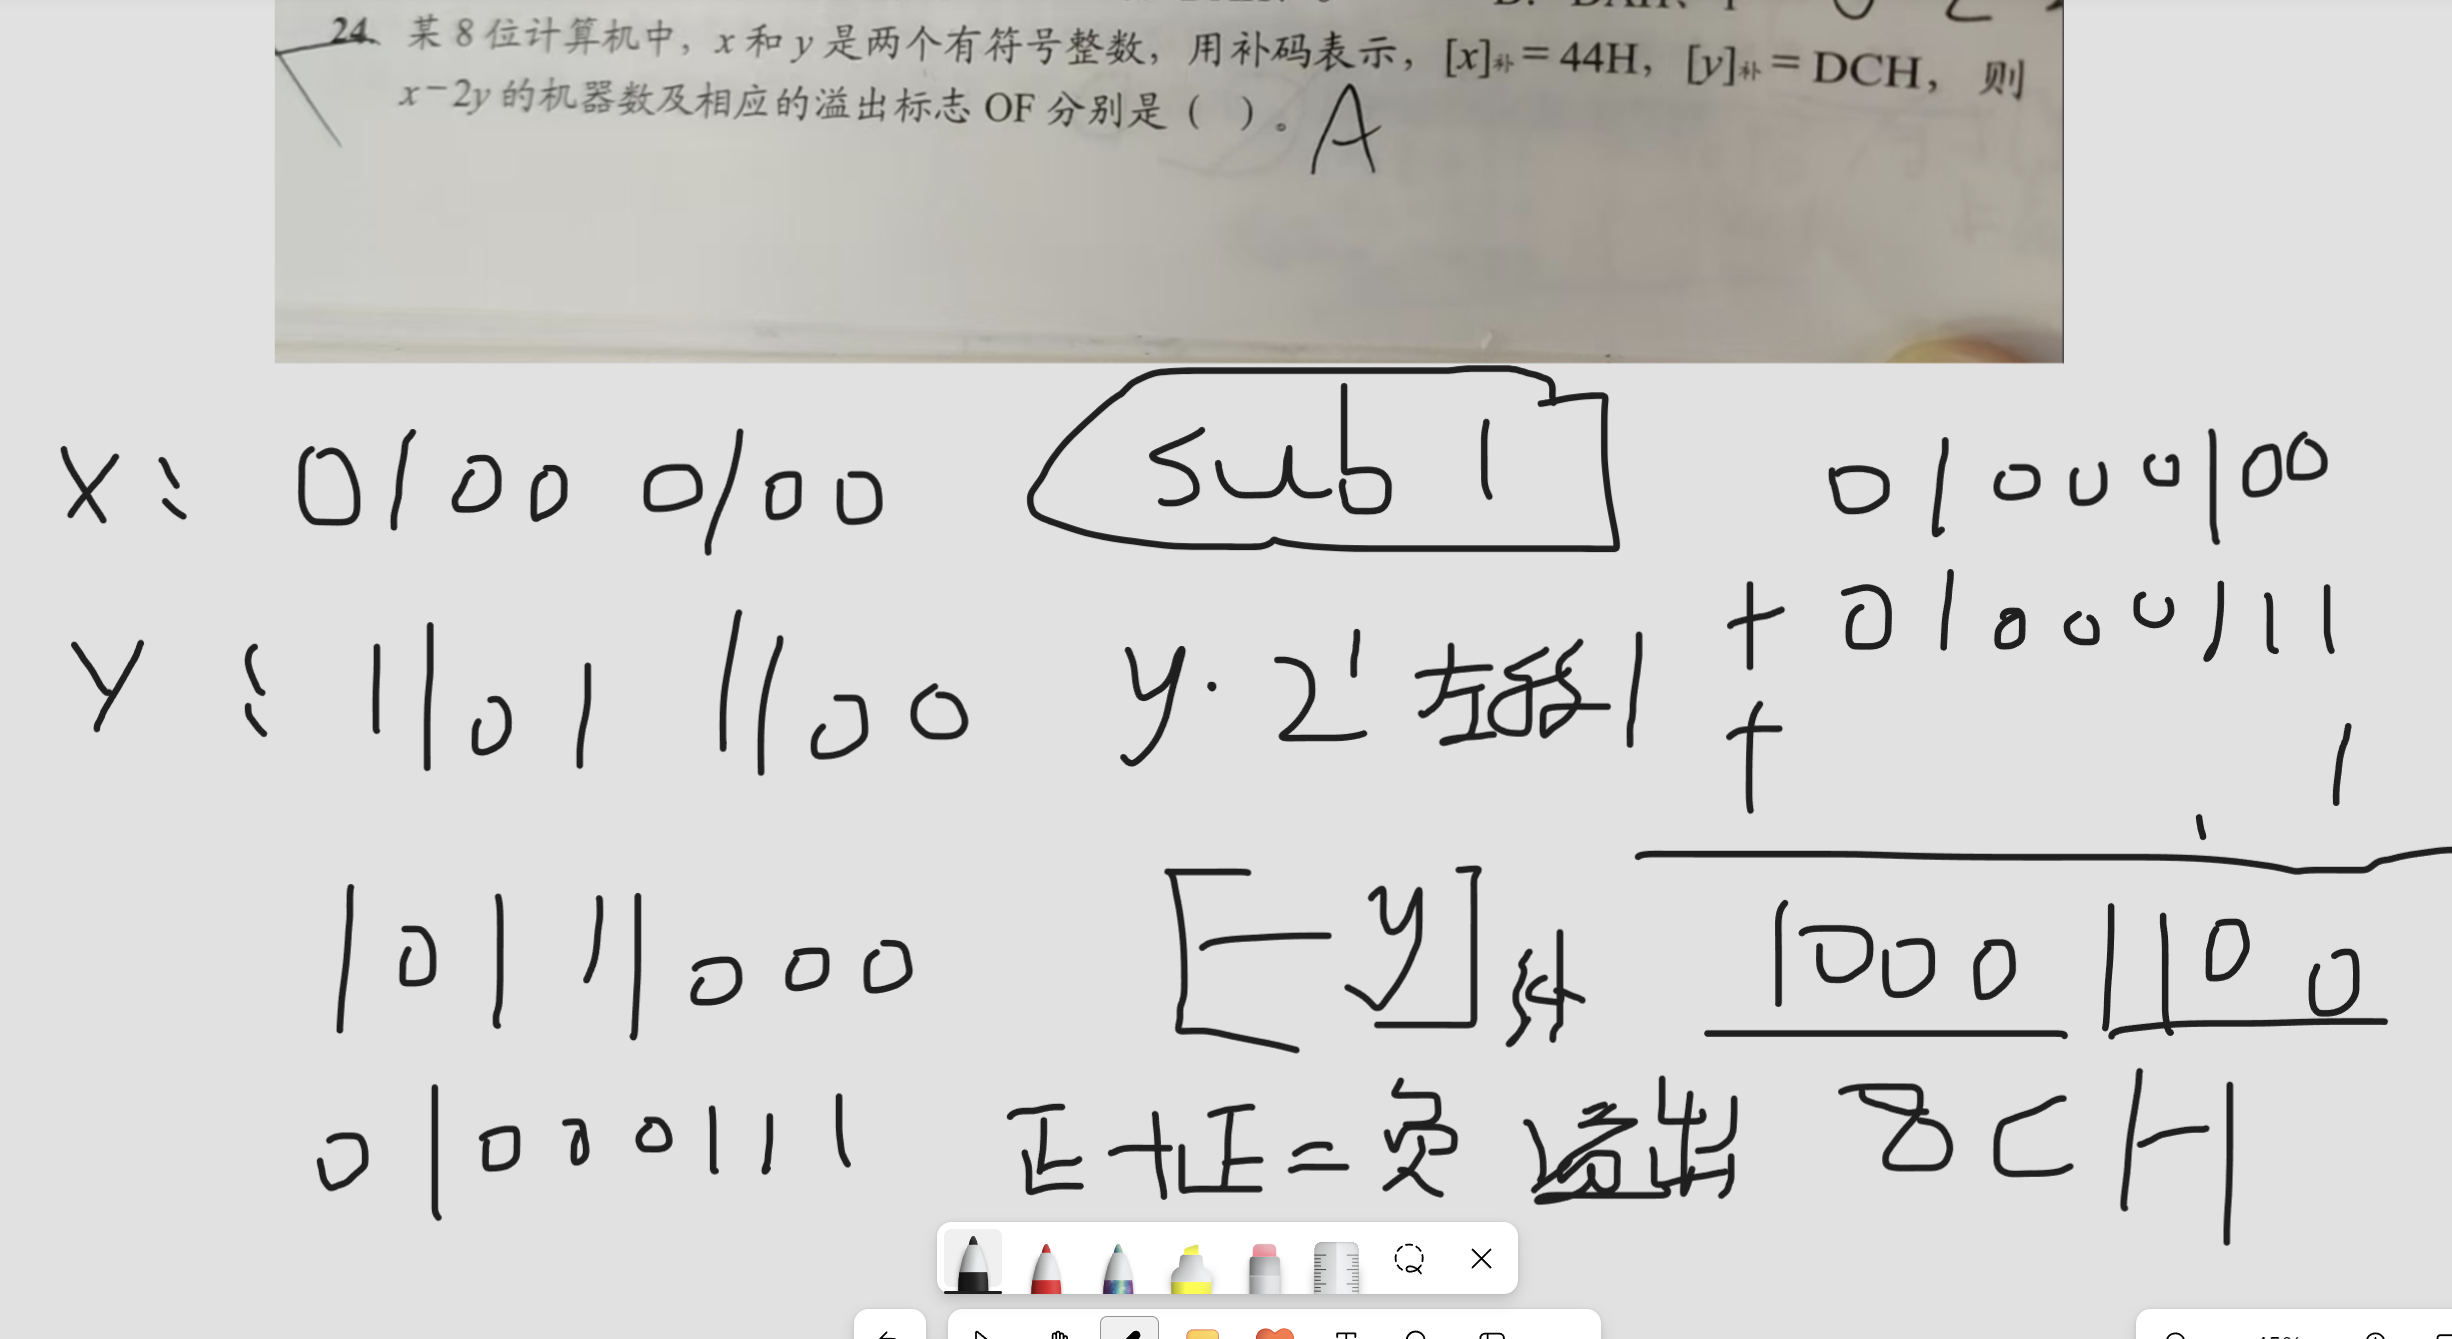 24. 某8位计算机中，x和y是两个有符号整数，用补码表示，[x]补=44H，[y]补=DCH，则
x-2y的机器数及相应的溢出标志OF分别是（ ）。A
X: 0100 0100
sub 1
01000100
Y: 1101 1100
y·2¹ 左移1
+ 01000111
+ 1
10111000
[-y]补
1000 1100
01000111
正+正=负 溢出
8CH